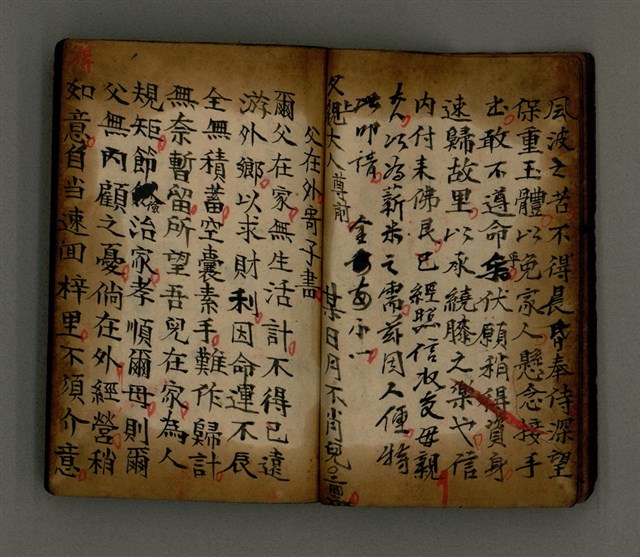 風波之苦不得晨昏奉侍深望
保重玉體以免家人懸念接手
出敢不遵命 伏願稍得資身
速歸故里以承繞膝之樂也信
内付来佛艮已經照信收交母親
大人以為薪米之需茲因人便特
此叩請 金安
某日月不肖兒
父親大人尊前
父在外寄子書
爾父在家無生活計不得已遠
游外鄉以求財利因命運不辰
全無積蓄空囊素手難作歸計
無奈暫留所望吾兒在家為人
規矩節儉治家孝順爾母則爾
父無內顧之憂倘在外經營稍
如意自当速回梓里不須介意